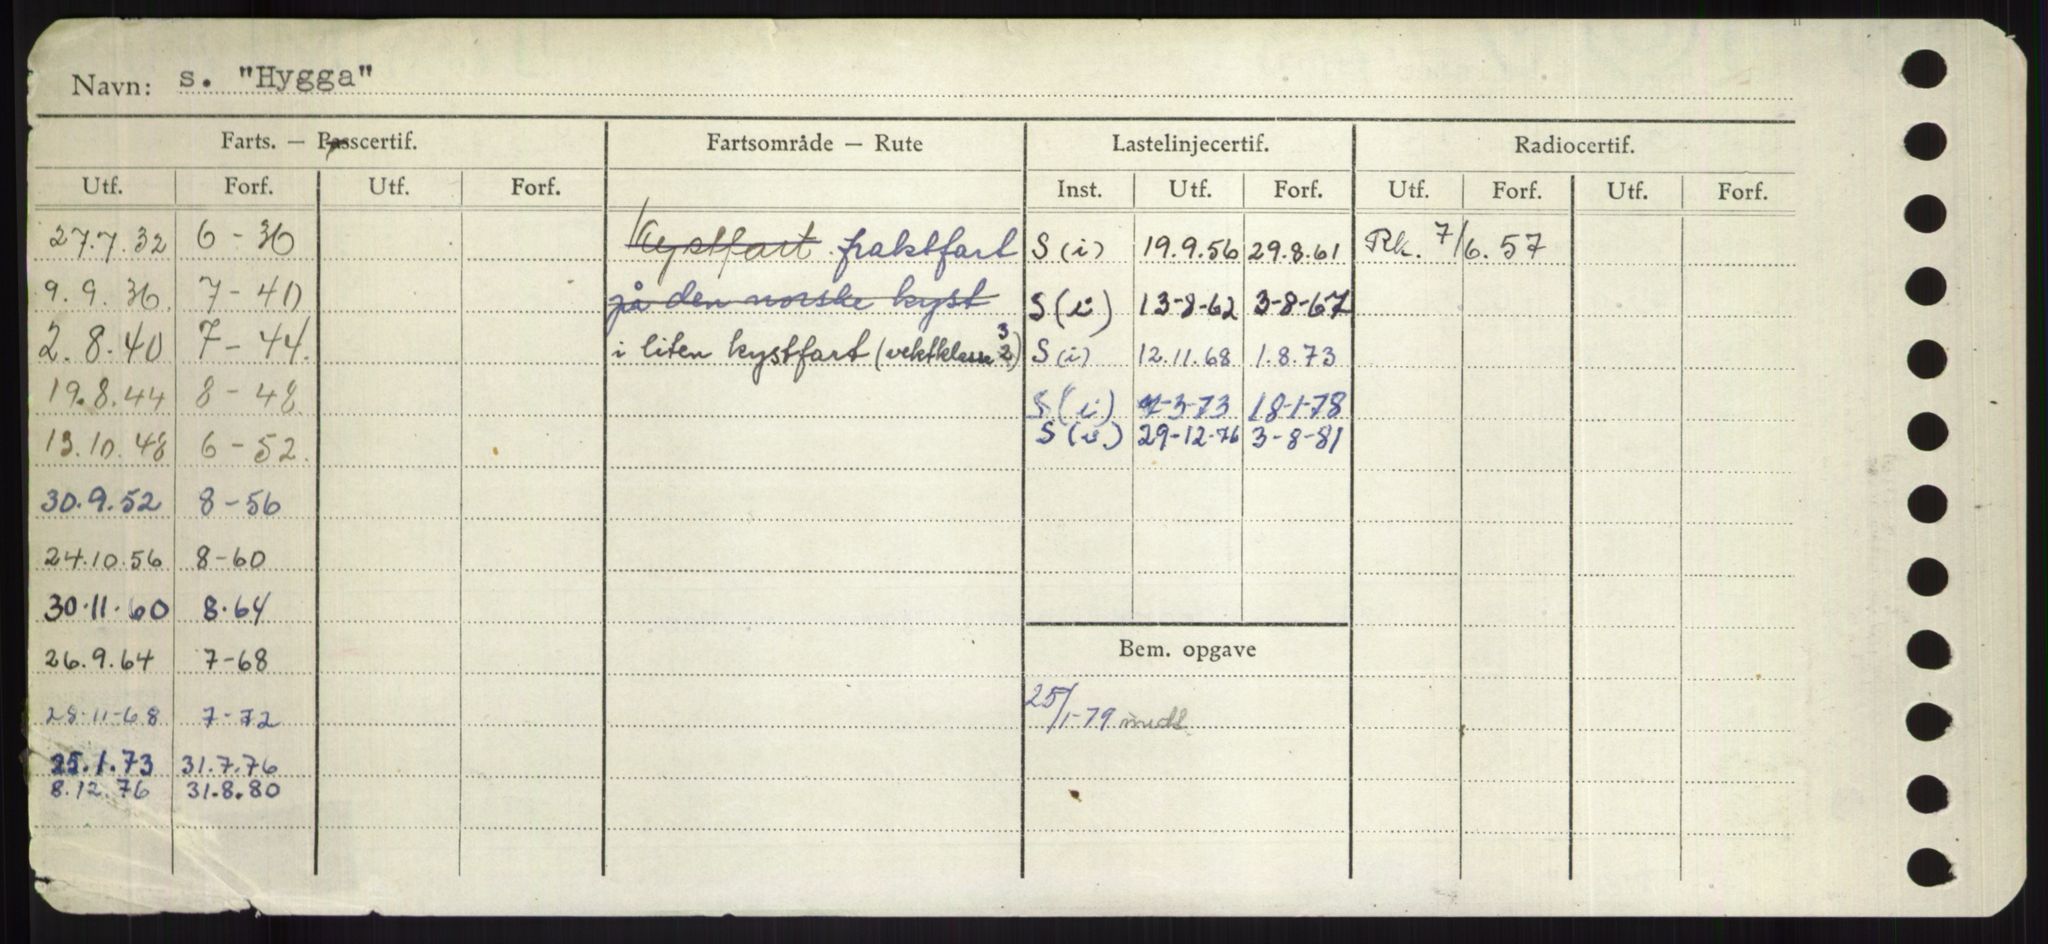 Navn: s. "Hygga"
Farts. — Passcertif. Fartsområde — Rute Lastelinjecertif. Radiocertif.
Utf. Forf. Utf. Forf. Inst. Utf. Forf. Utf. Forf. Utf. Forf.
27.7.32 6-36 Kystfart fraktfart S (i) 19.9.56 29.8.61 Rk. 7/6.57
9.9.36. 7-40 på den norske kyst S (i) 13-8-62 3-8-67
2.8.40 7-44. i liten kystfart (vektklasse 2 3) S (i) 12.11.68 1.8.73
19.8.44 8-48 S (i) 7-3-73 18-1-78
13.10.48 6-52. S (i) 29-12-76 3-8-81
30.9.52 8-56
24.10.56 8-60
30.11.60 8.64
26.9.64 7-68
Bem. opgave
28-11-68 7-72 25/1-79
25.1.73 31.7.76
8.12.76 31.8.80